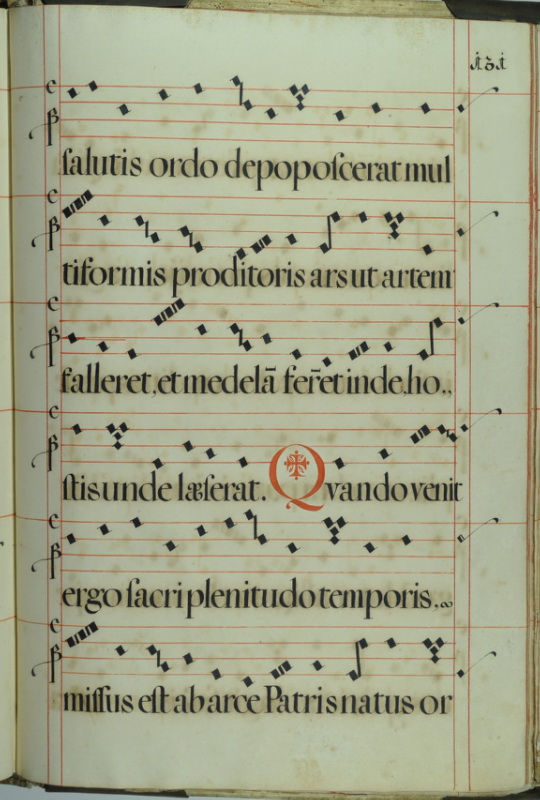 131
salutis ordo depoposcerat mul
tiformis proditoris ars ut artem
falleret, et medelā fer̄et inde, ho.,
stis unde læserat. Quando venit
ergo sacri plenitudo temporis.
missus est ab arce Patris natus or